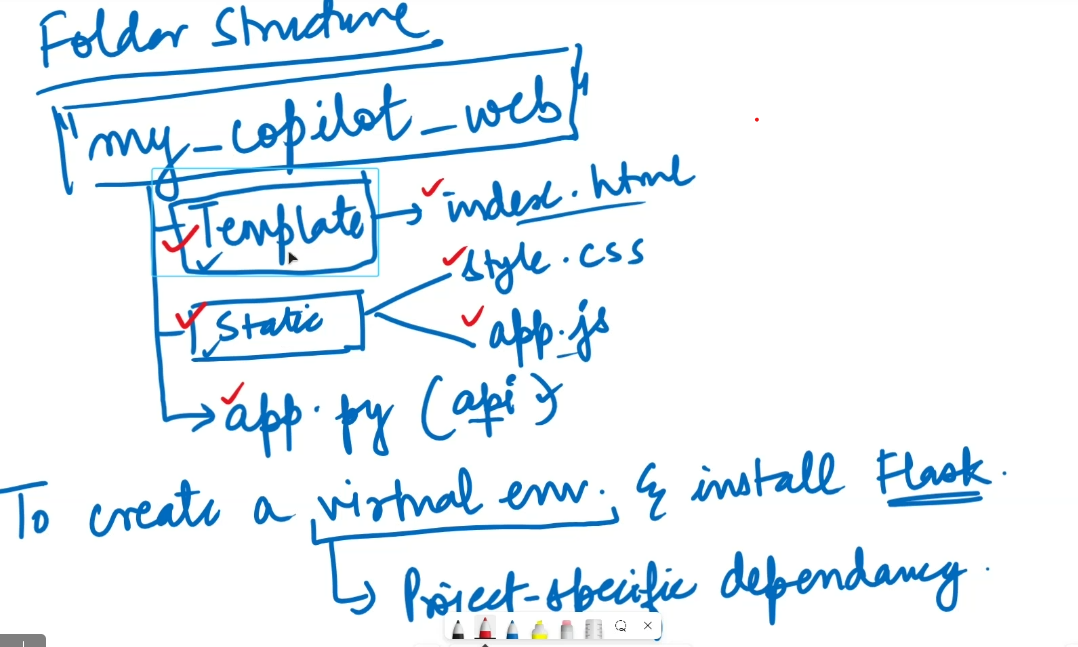 Folder Structure
"my_copilot_web"
Template → index.html
Static style.css
app.js
→ app.py (api)
To create a virtual env. & install Flask.
↳ Project-specific dependancy.